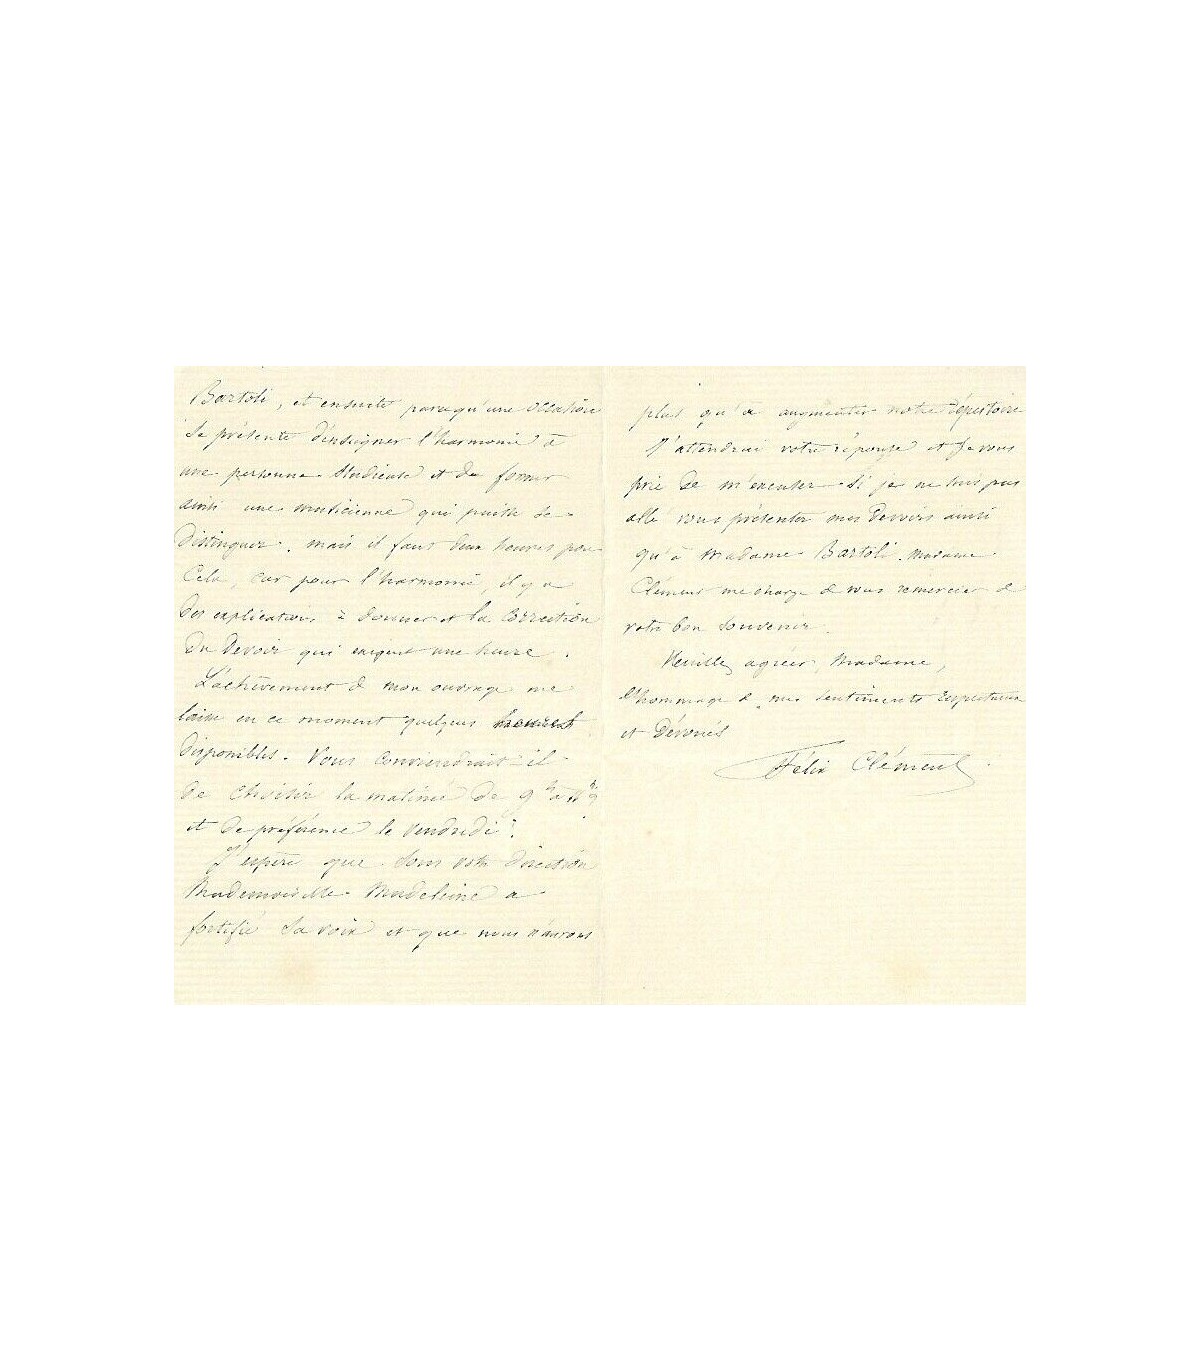 Bartoli, et ensuite parcequ'une occasion
se présente d'enseigner l'harmonie à
une personne studieuse et de former
ainsi une musicienne qui puisse se
distinguer. mais il faut deux heures pour
cela, car pour l'harmonie, il y a
des explications à donner et la correction
du devoir qui exigent une heure.
L'achèvement de mon ouvrage me
laisse en ce moment quelques heures
disponibles. Vous conviendrait-il
de choisir la matinée de 9h à 11h
et de préférence le vendredi?
J'espère que sous votre direction
Mademoiselle Madeleine a
fortifié sa voix et que nous n'aurons
plus qu'à augmenter notre répertoire
J'attendrai votre réponse et je vous
prie de m'excuser si je ne suis pas
allé vous présenter mes devoirs ainsi
qu'à Madame Bartoli. Madame
Clément me charge de vous remercier de
votre bon souvenir.
Veuillez agréer, Madame,
l'hommage de mes sentiments respectueux
et dévoués
Félix Clément